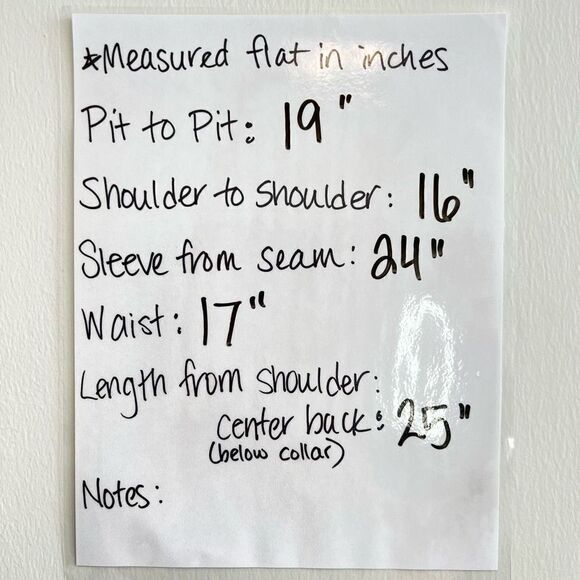 *Measured flat in inches
Pit to Pit: 19"
Shoulder to Shoulder: 16"
Sleeve from seam: 24"
Waist: 17"
Length from shoulder:
center back: 25"
(below collar)
Notes: